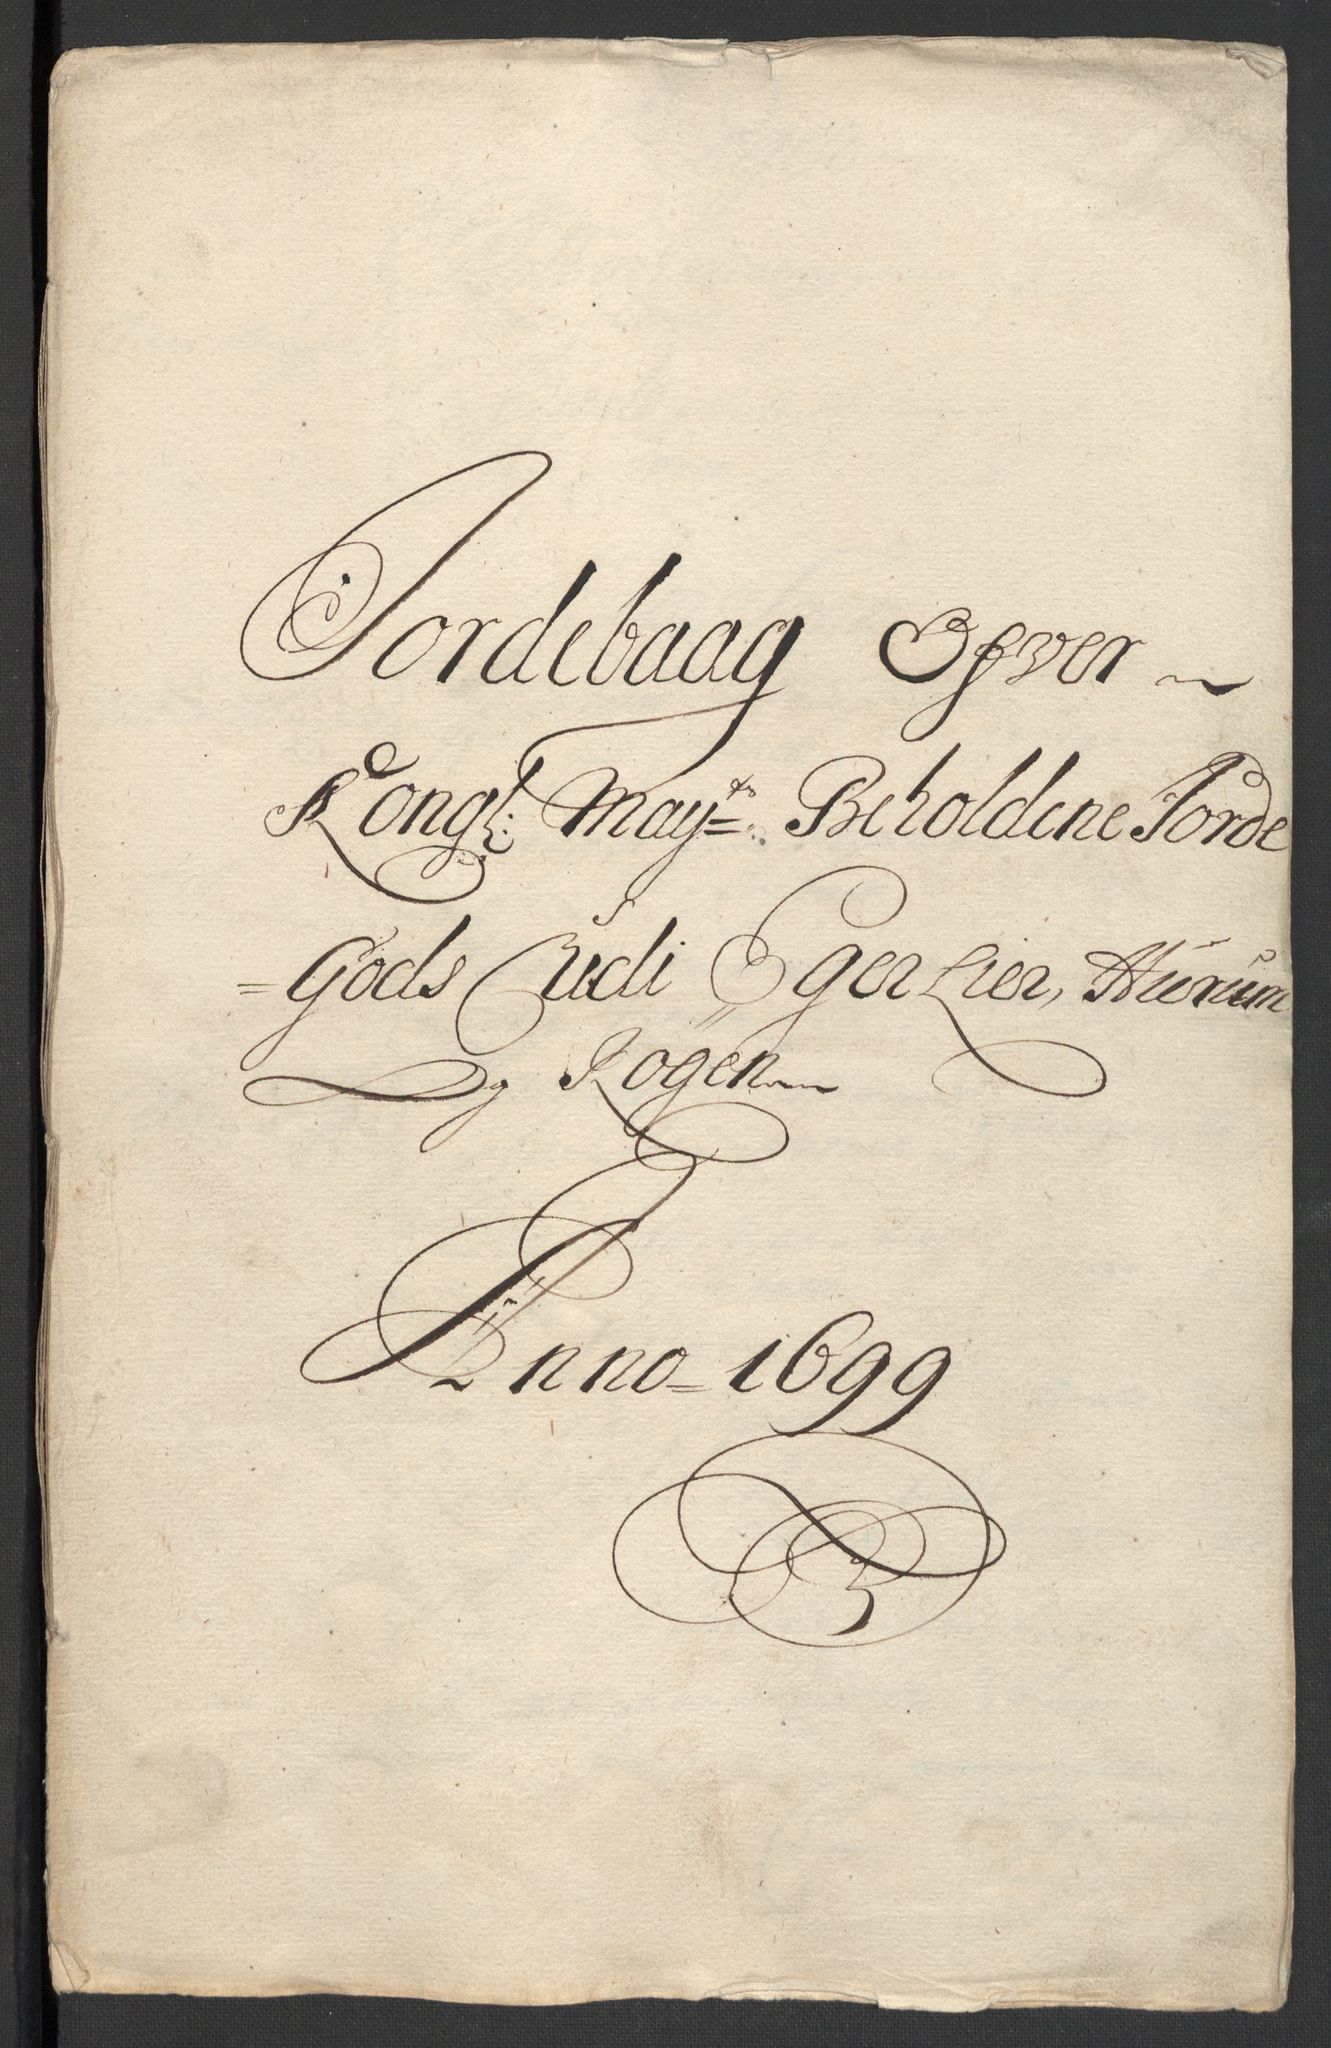 Jordebaag Ofver
Kongl: Mayts Beholdene Jorde
=Gods Udi Eger Lier, Hurum
Og Rögen
Anno = 1699